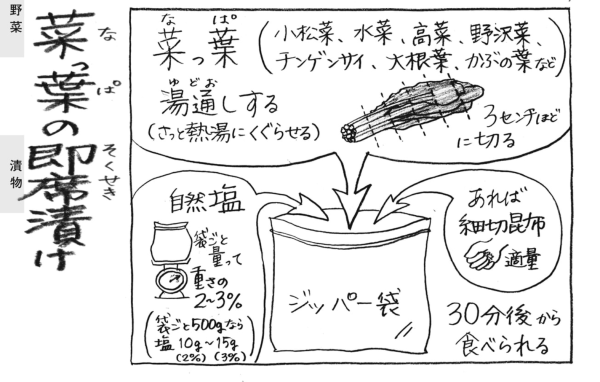 野菜
漬物
菜っ葉の即席漬け
な ぱ そくせき
な ぱ
菜っ葉
(小松菜、水菜、高菜、野沢菜、
チンゲンサイ、大根葉、かぶの葉など)
ゆどお
湯通しする
(さっと熱湯にくぐらせる)
3センチほど
に切る
自然塩
袋ごと
量って
重さの
2~3%
(袋ごと500gなら
塩 10g~15g
(2%) (3%))
ジッパー袋
あれば
細切昆布
適量
30分後から
食べられる